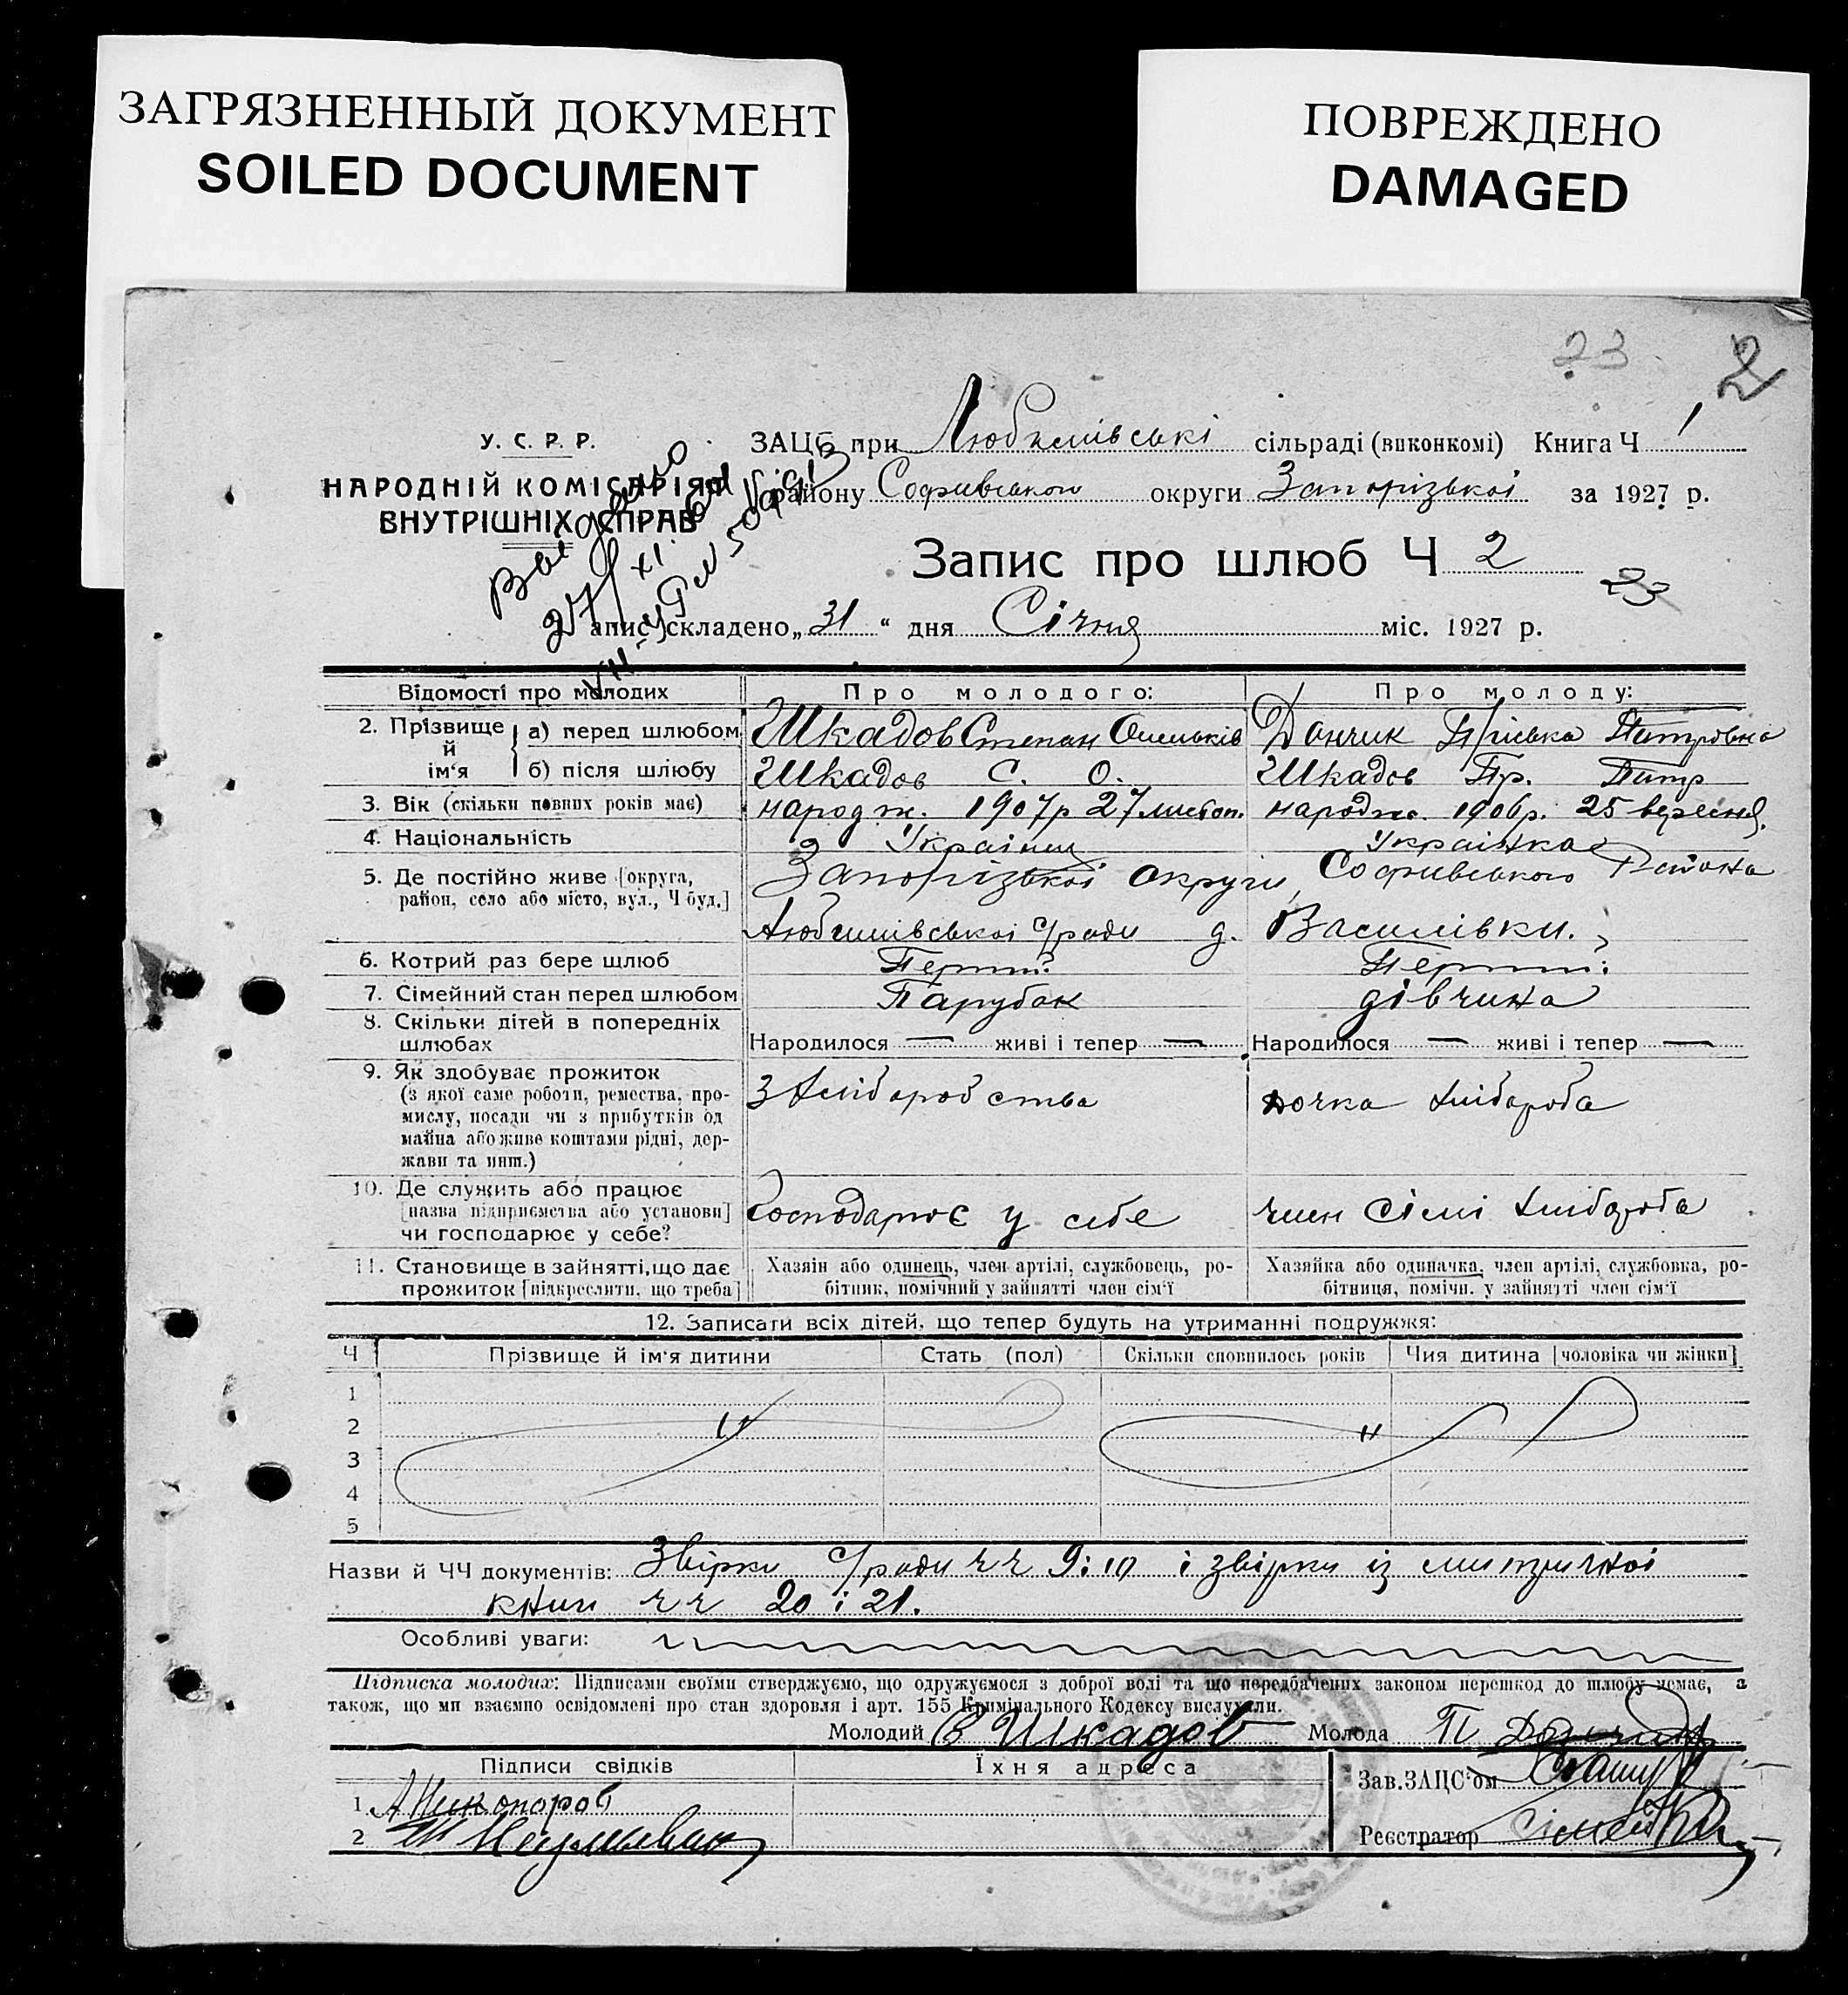 ЗАГРЯЗНЕННЫЙ ДОКУМЕНТ
SOILED DOCUMENT
ПОВРЕЖДЕНО
DAMAGED
23
2
У. С. Р. Р.
НАРОДНІЙ КОМІСАРІЯТ
ВНУТРІШНІХ СПРАВ
ЗАЦС при Любимівські сільраді (виконкомі) Книга Ч 1
району Софіївського округи Запорізької за 1927 р.
Запис про шлюб Ч 2
23
Запис складено „31“ дня Січня міс. 1927 р.
Відомості про молодих Про молодого: Про молоду:
2. Прізвище й ім'я
а) перед шлюбом Шкадов Степан Омельків Дончик Пріська Питровна
б) після шлюбу Шкадов С. О. Шкадов Пр. Питр
3. Вік (скільки повних років має) народж. 1907р 27 листоп. народж. 1906р. 25 вересня.
4. Національність Українец Українка
5. Де постійно живе [округа, район, село або місто, вул., Ч буд.] Запорізької округи, Софиівського Района
Любимівської с/ради д. Василівки.
6. Котрий раз бере шлюб Перший Перший
7. Сімейний стан перед шлюбом Парубок дівчина
8. Скільки дітей в попередніх шлюбах Народилося — живі і тепер — Народилося — живі і тепер —
9. Як здобуває прожиток
(з якої саме роботи, ремества, про-
мислу, посади чи з прибутків од
майна або живе коштами рідні, дер-
жави та инш.)
З хліборобства дочка хлібороба
10. Де служить або працює
[назва підприємства або установи]
чи господарює у себе?
Господарює у себе член сімі хлібороба
11. Становище в зайнятті, що дає
прожиток [підкреслити, що треба]
Хазяїн або одинець, член артілі, службовець, ро-
бітник, помічний у зайнятті член сім'ї
Хазяйка або одиначка, член артілі, службовка, ро-
бітниця, помічн. у зайнятті член сім'ї
12. Записати всіх дітей, що тепер будуть на утриманні подружжя:
Ч Прізвище й ім'я дитини Стать (пол) Скільки сповнилось років Чия дитина [чоловіка чи жінки]
1
2
3
4
5
Назви й ЧЧ документів: Звірки с/ради чч 9 і 10 і звірки із митричної
книги чч 20 і 21.
Особливі уваги:
Підписка молодих: Підписами своїми стверджуємо, що одружуємося з доброї волі та що передбачених законом перешкод до шлюбу немає, а
також, що ми взаємно освідомлені про стан здоровля і арт. 155 Кримінального Кодексу вислухали.
Молодий С Шкадов Молода П Дончик
Підписи свідків Їхня адреса Зав. ЗАЦС'ом
1
2
Реєстратор